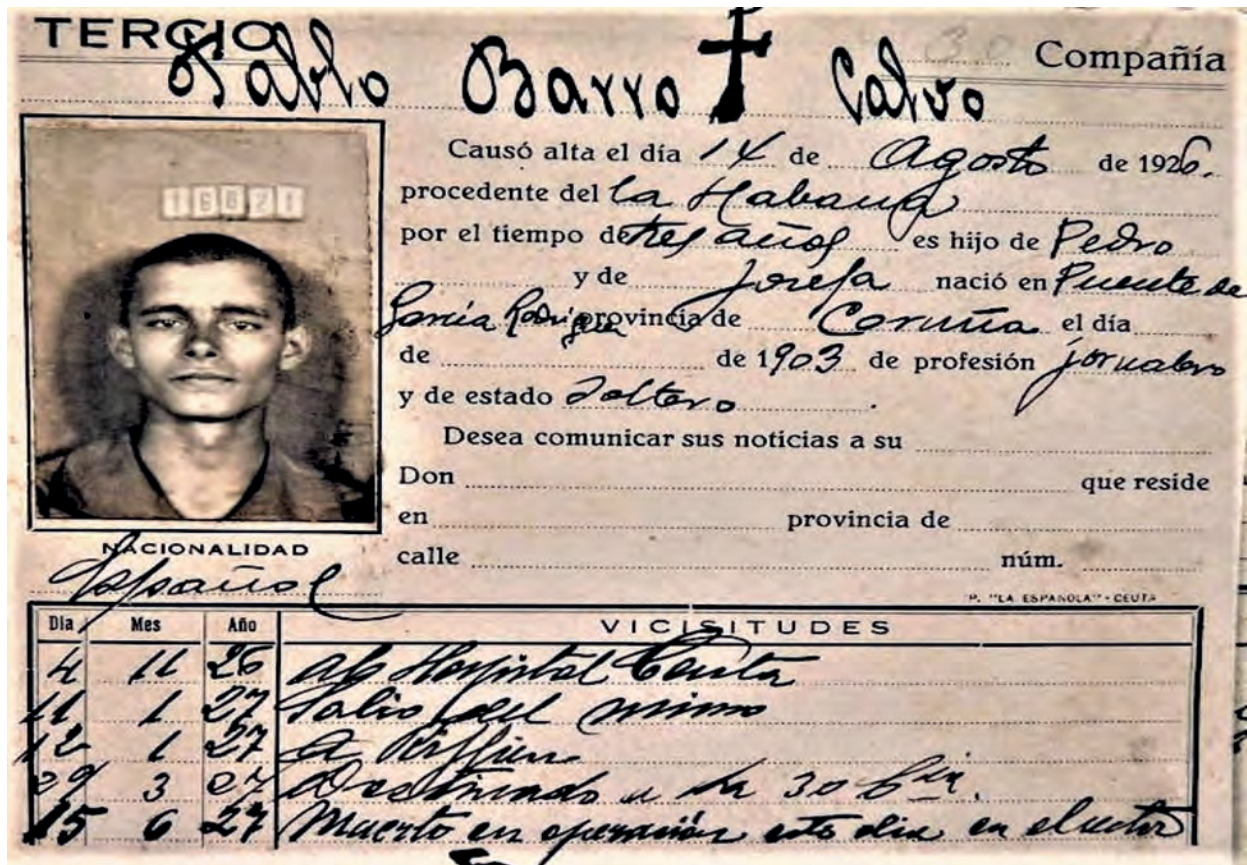 TERCIO 30 Compañía
Pablo Barro Calvo
Causó alta el día 14 de Agosto de 1926.
16821
procedente del la Habana
por el tiempo de tres años es hijo de Pedro
y de Josefa nació en Puente de
García Rodríguez provincia de Coruña el día
de de 1903 de profesión jornalero
y de estado Soltero.
Desea comunicar sus noticias a su
Don que reside
en provincia de
calle núm.
NACIONALIDAD
Español
P. "LA ESPAÑOLA" - CEUTA
Dia Mes Año VICISITUDES
4 11 26 al Hospital Ceuta
11 1 27 Salio del mismo
12 1 27 a Riffien
29 3 27 Destinado a la 30 Cia.
15 6 27 Muerto en operación este dia en el sector